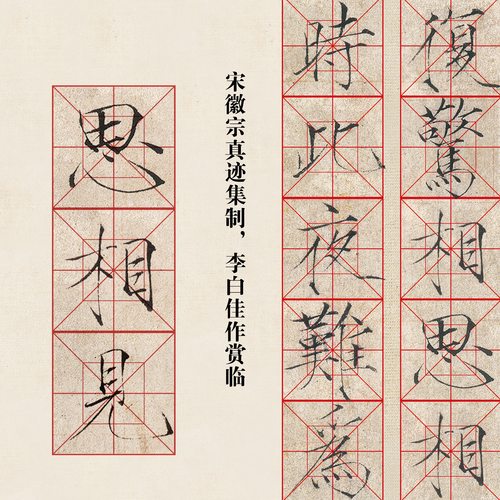 復驚相思相
時此夜難為
宋徽宗真迹集制，李白佳作赏临
思相見